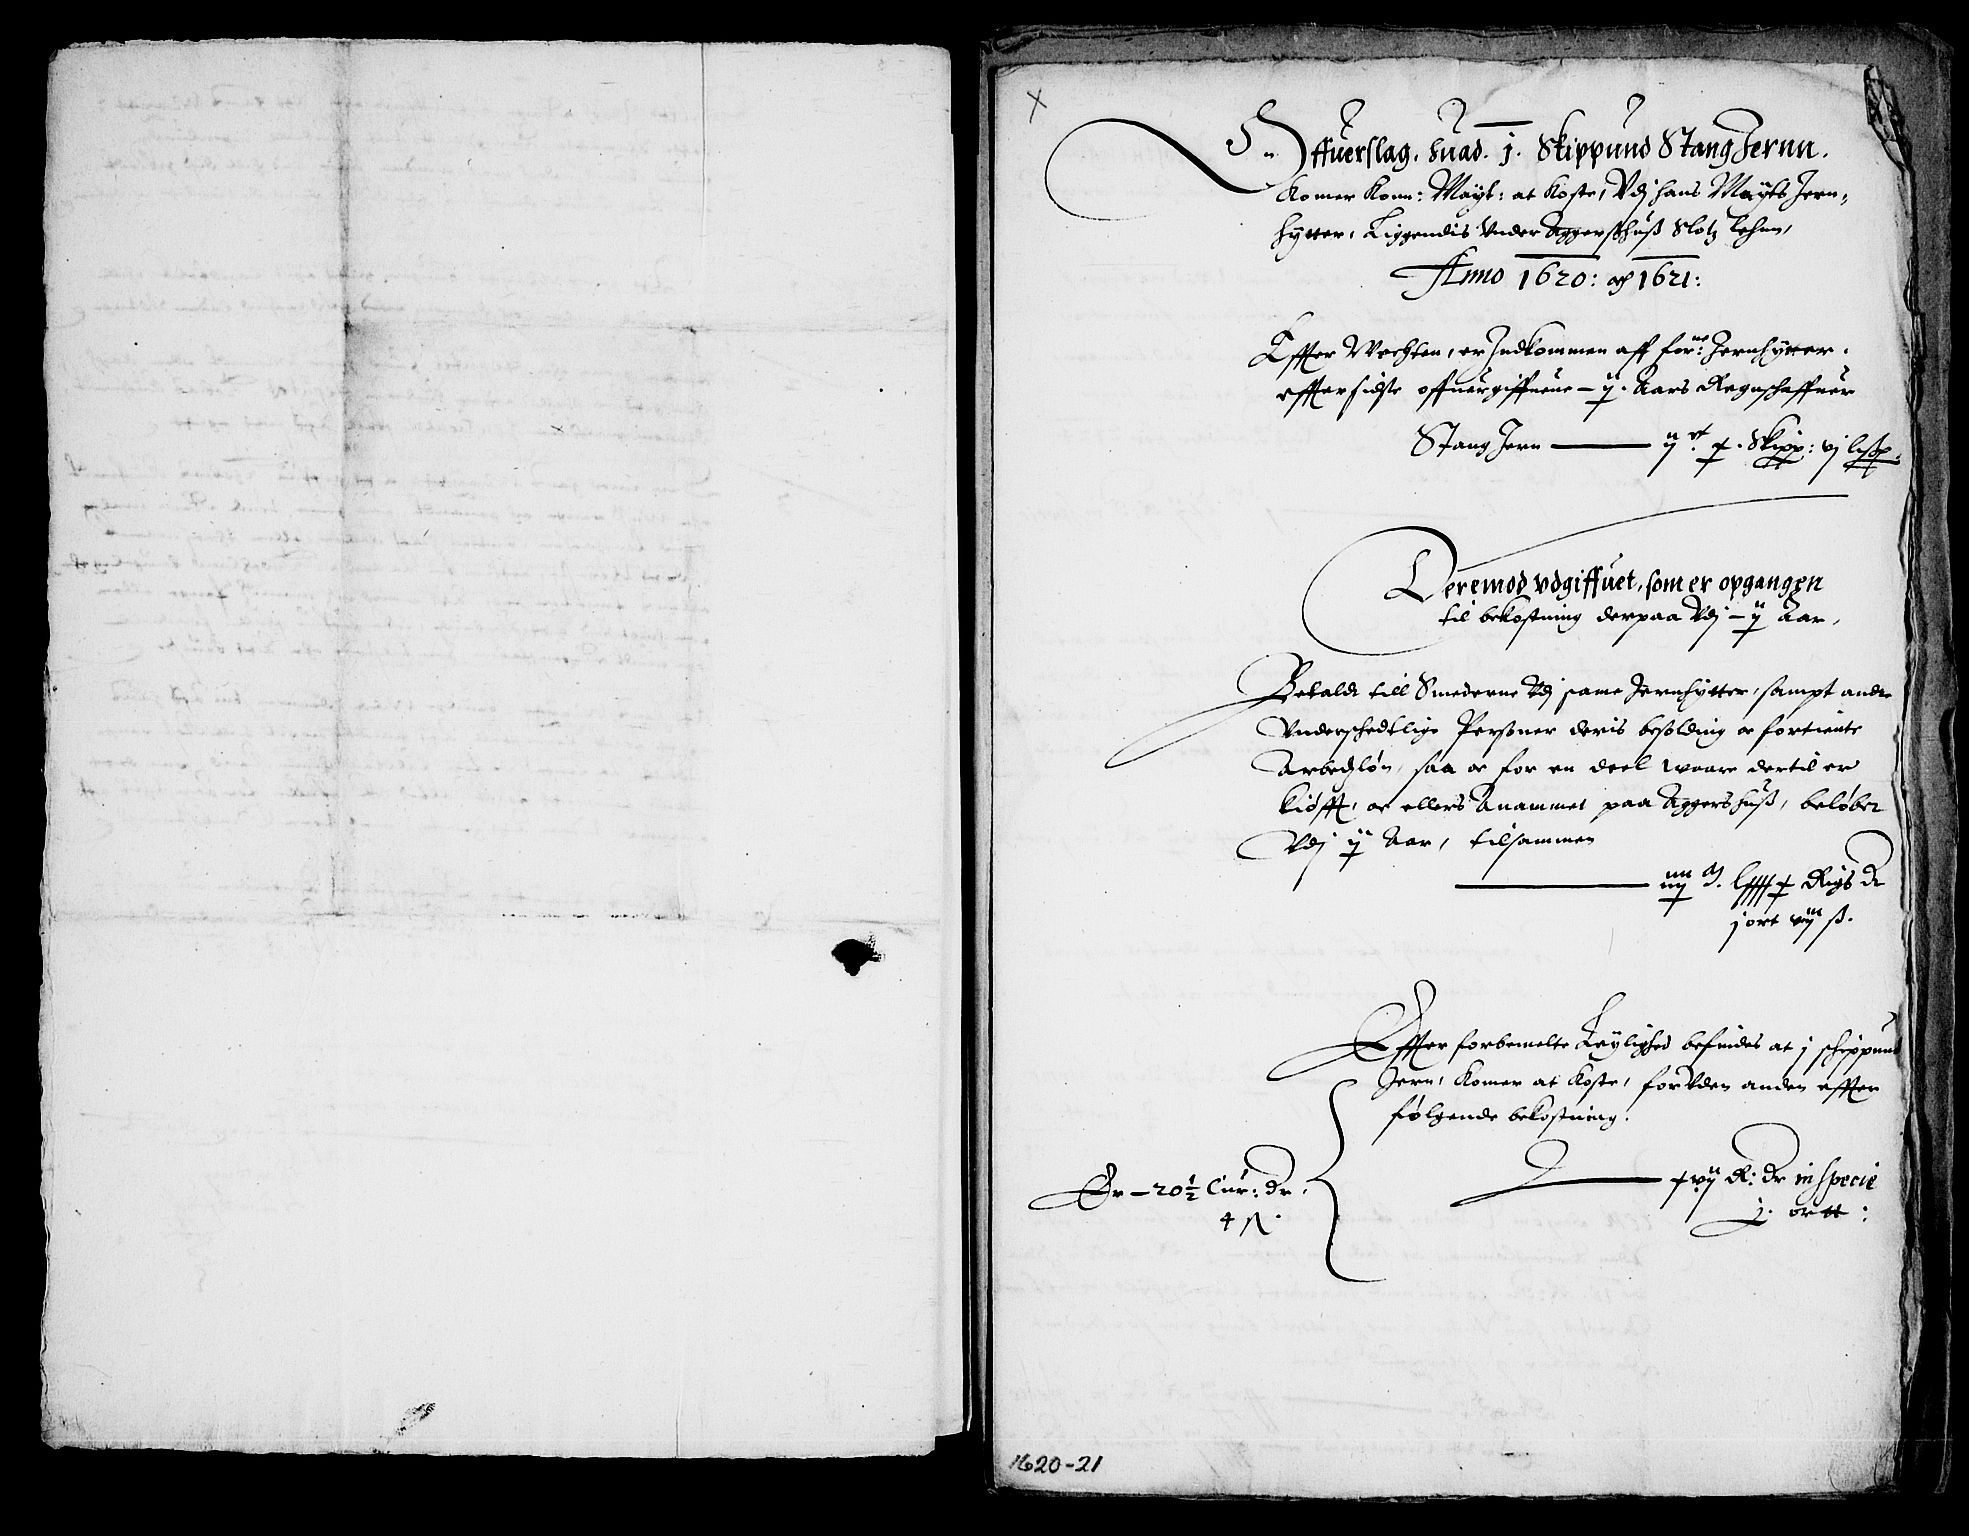 Offuerslag, huad j. Skippund Stang Jernn.
Komer Konn: Maÿt: at koste, Vdj hans Maÿts Jern,,
hÿtter, Liggendis Vnder Aggershuß Slotz Lehnn,
Anno 1620: och 1621:
Effter Wechten, er Indkommen aff forne: Jernhÿtter,
effter sidste offuergiffuene – ij. Aars Regnschaffuer
Stang Jern — ijct. x. Skipp: vj lißp:
Deremod vdgiffuet, som er opgangen
til bekostning derpaa Vdj – ij Aar,
Betaldt till Smederne Vdj same Jernhÿtter, sampt andre
Vnderschedtlige Personer deris besolding oc fortiente
Arbedzløn, saa oc for en deel waare dertil er
kiøfft, oc ellers Anammet paa Aggershuß, beløber
Vdj ij Aar, tilsammen
iiij Rigs dr
j ort viij ß.
Effter forbemelte Leÿlighed befindes at j schippund
Jern, komer at koste, foruden anden effter
følgende bekostning.
xvij R: dr in specie
j. ortt:
Er – 20½ Cur: dr,
4 ß.
1620-21